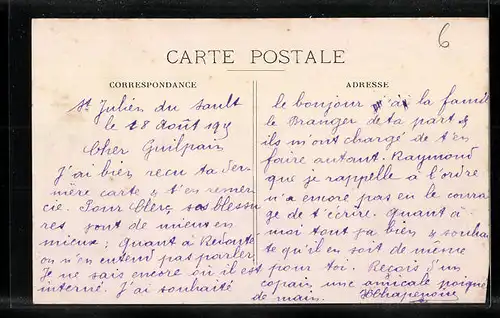 CARTE POSTALE
CORRESPONDANCE
St Julien du Sault
le 28 Août 19
Cher Guilpain
J'ai bien reçu ta der-
nière carte & t'en remer-
cie. Pour Clerc ses blessu
res sont de mieux en
mieux; Quant à Redouté
on n'en entend pas parler
Je ne sais encore où il est
interné. J'ai souhaité
ADRESSE
le bonjour à la famille
le Branger de ta part &
ils m'ont chargé de t'en
faire autant. Raymond
que je rappelle à l'ordre
n'a encore pas eu le coura
ge de t'écrire. Quant à
moi tout va bien & souhai
te qu'il en soit de même
pour toi. Reçois d'un
copain une amicale poignée
de main.
6